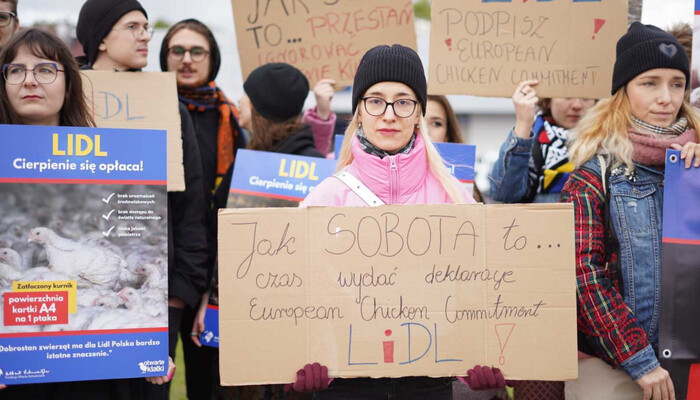 JAK S
TO... PRZESTAŃ
IGNOROWAĆ
PODPISZ
EUROPEAN
CHICKEN COMMITMENT
!
!
LIDL
LIDL
Cierpienie się opłaca!
brak urozmaiceń
środowiskowych
brak dostępu do światła
naturalnego
brak
powietrza
Zatłoczony kurnik
powierzchnia
kartki A4
na 1 ptaka
"Dobrostan zwierząt ma dla Lidl Polska bardzo
istotne znaczenie."
otwarte
klatki
LIDL
Cierpienie się opłaca!
Jak SOBOTA to...
czas wydać deklarację
European Chicken Commitment
LiDL !